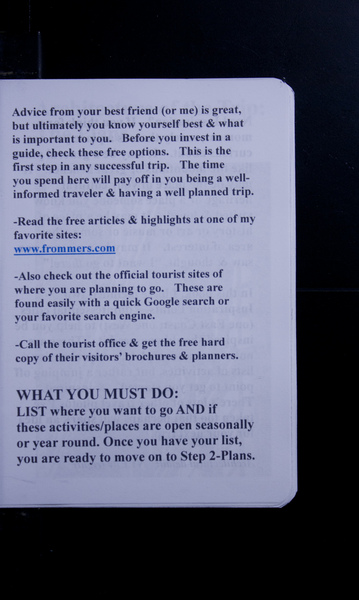 Advice from your best friend (or me) is great,
but ultimately you know yourself best & what
is important to you. Before you invest in a
guide, check these free options. This is the
first step in any successful trip. The time
you spend here will pay off in you being a well-
informed traveler & having a well planned trip.
-Read the free articles & highlights at one of my
favorite sites:
www.frommers.com
-Also check out the official tourist sites of
where you are planning to go. These are
found easily with a quick Google search or
your favorite search engine.
-Call the tourist office & get the free hard
copy of their visitors' brochures & planners.
WHAT YOU MUST DO:
LIST where you want to go AND if
these activities/places are open seasonally
or year round. Once you have your list,
you are ready to move on to Step 2-Plans.